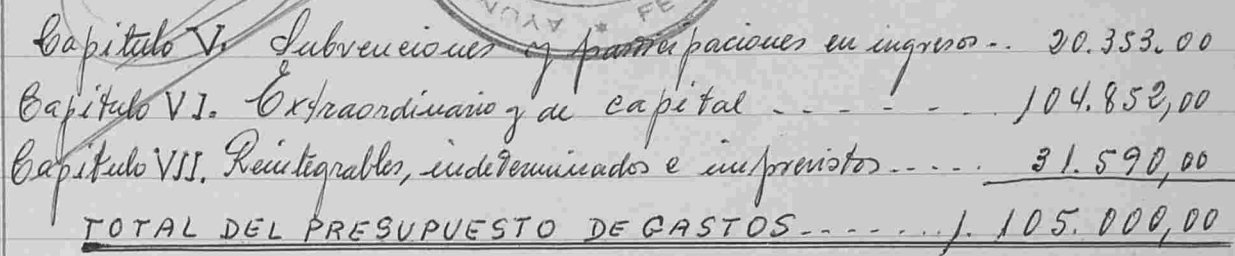 Capítulo V. Subvenciones y participaciones en ingresos.. 20.353.00
Capítulo VI. Extraordinario y de capital - - - - - - 104.852,00
Capítulo VII. Reintegrables, indeterminados e imprevistos----- 31.590,00
TOTAL DEL PRESUPUESTO DE GASTOS-------1.105.000,00